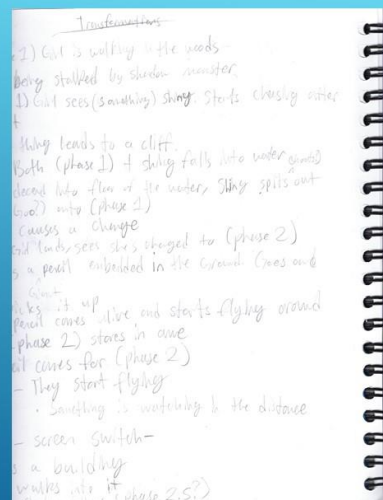 Transformations
1) Girl is walking in the woods
being stalked by shadow monster
1) Girl sees (something) shiny. Starts chasing after
t
thing leads to a cliff.
Both (phase 1) + thing falls into water
into floor of the water, spills out
onto (phase 1)
causes a change
lands, sees she's changed to (phase 2)
s a pencil embedded in the ground (goes and
Giant
picks it up
Pencil comes alive and starts flying around
phase 2) stares in awe
comes for (phase 2)
- They start flying
· Something is watching in the distance
- screen switch-
s a building
walks into it
(phase 2.5?)